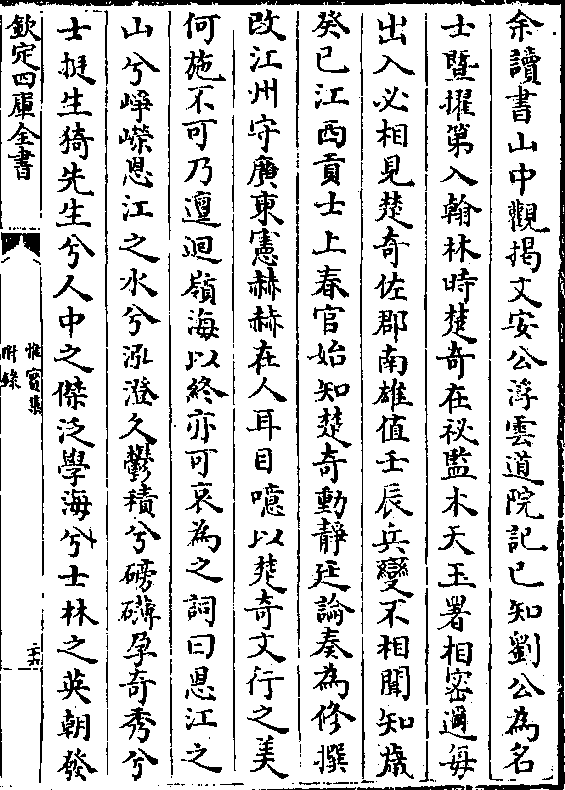 余讀書山中觀揭文安公浮雲道院記已知劉公為名
士暨擢第入翰林時楚奇在祕監木天玉署相密邇每
出入必相見楚奇佐郡南雄值壬辰兵變不相聞知歲
癸巳江西貢士上春官始知楚奇動靜廷論奏為修撰
改江州守廣東憲赫赫在人耳目噫以楚奇文行之美
何施不可乃邅迴嶺海以終亦可哀為之詞曰恩江之
山兮崢嶸恩江之水兮泓澄久鬱積兮磅礴孕奇秀兮
士挺生猗先生兮人中之傑泛學海兮士林之英朝發
欽定四庫全書
惟實集
附錄